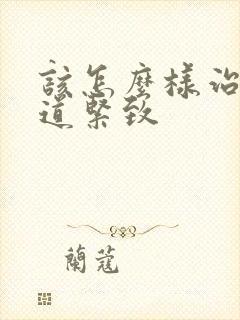 該怎麼樣治
道緊致
蘭蔻